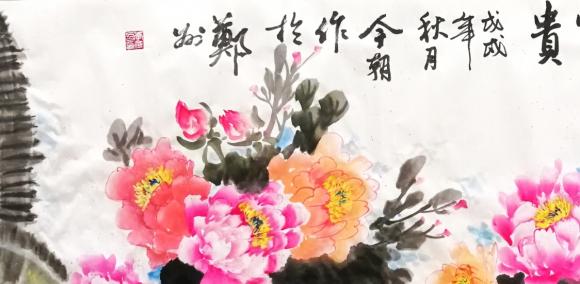 貴
戊戌
年
秋月
今朝
作
於
鄭
州